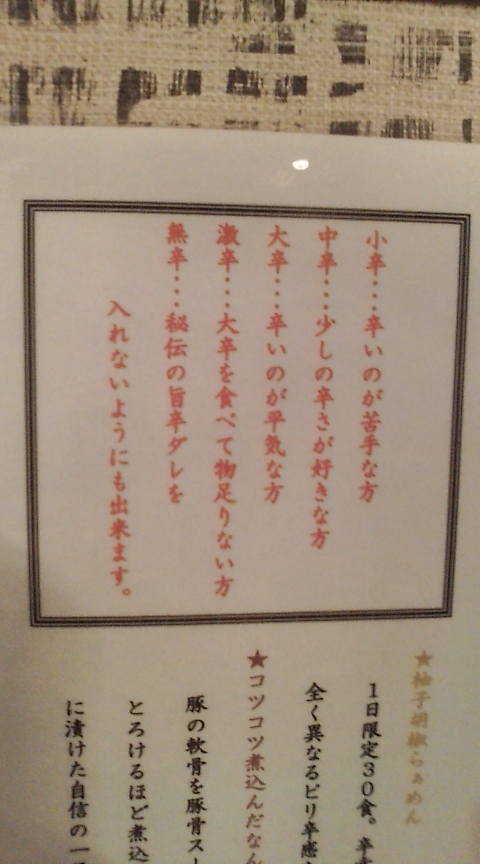 小辛・・・辛いのが苦手な方
中辛・・・少しの辛さが好きな方
大辛・・・辛いのが平気な方
激辛・・・大辛を食べて物足りない方
無辛・・・秘伝の旨辛ダレを
入れないようにも出来ます。
★柚子胡椒らぁめん
1日限定30食。辛
全く異なるピリ辛感
★コツコツ煮込んだなん
豚の軟骨を豚骨ス
とろけるほど煮込
に漬けた自信の一